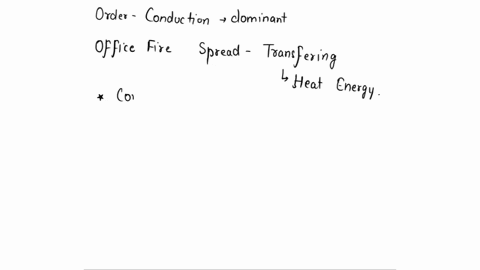 Order - Conduction → dominant
Office Fire Spread - Transfering
↳ Heat Energy.
* Con